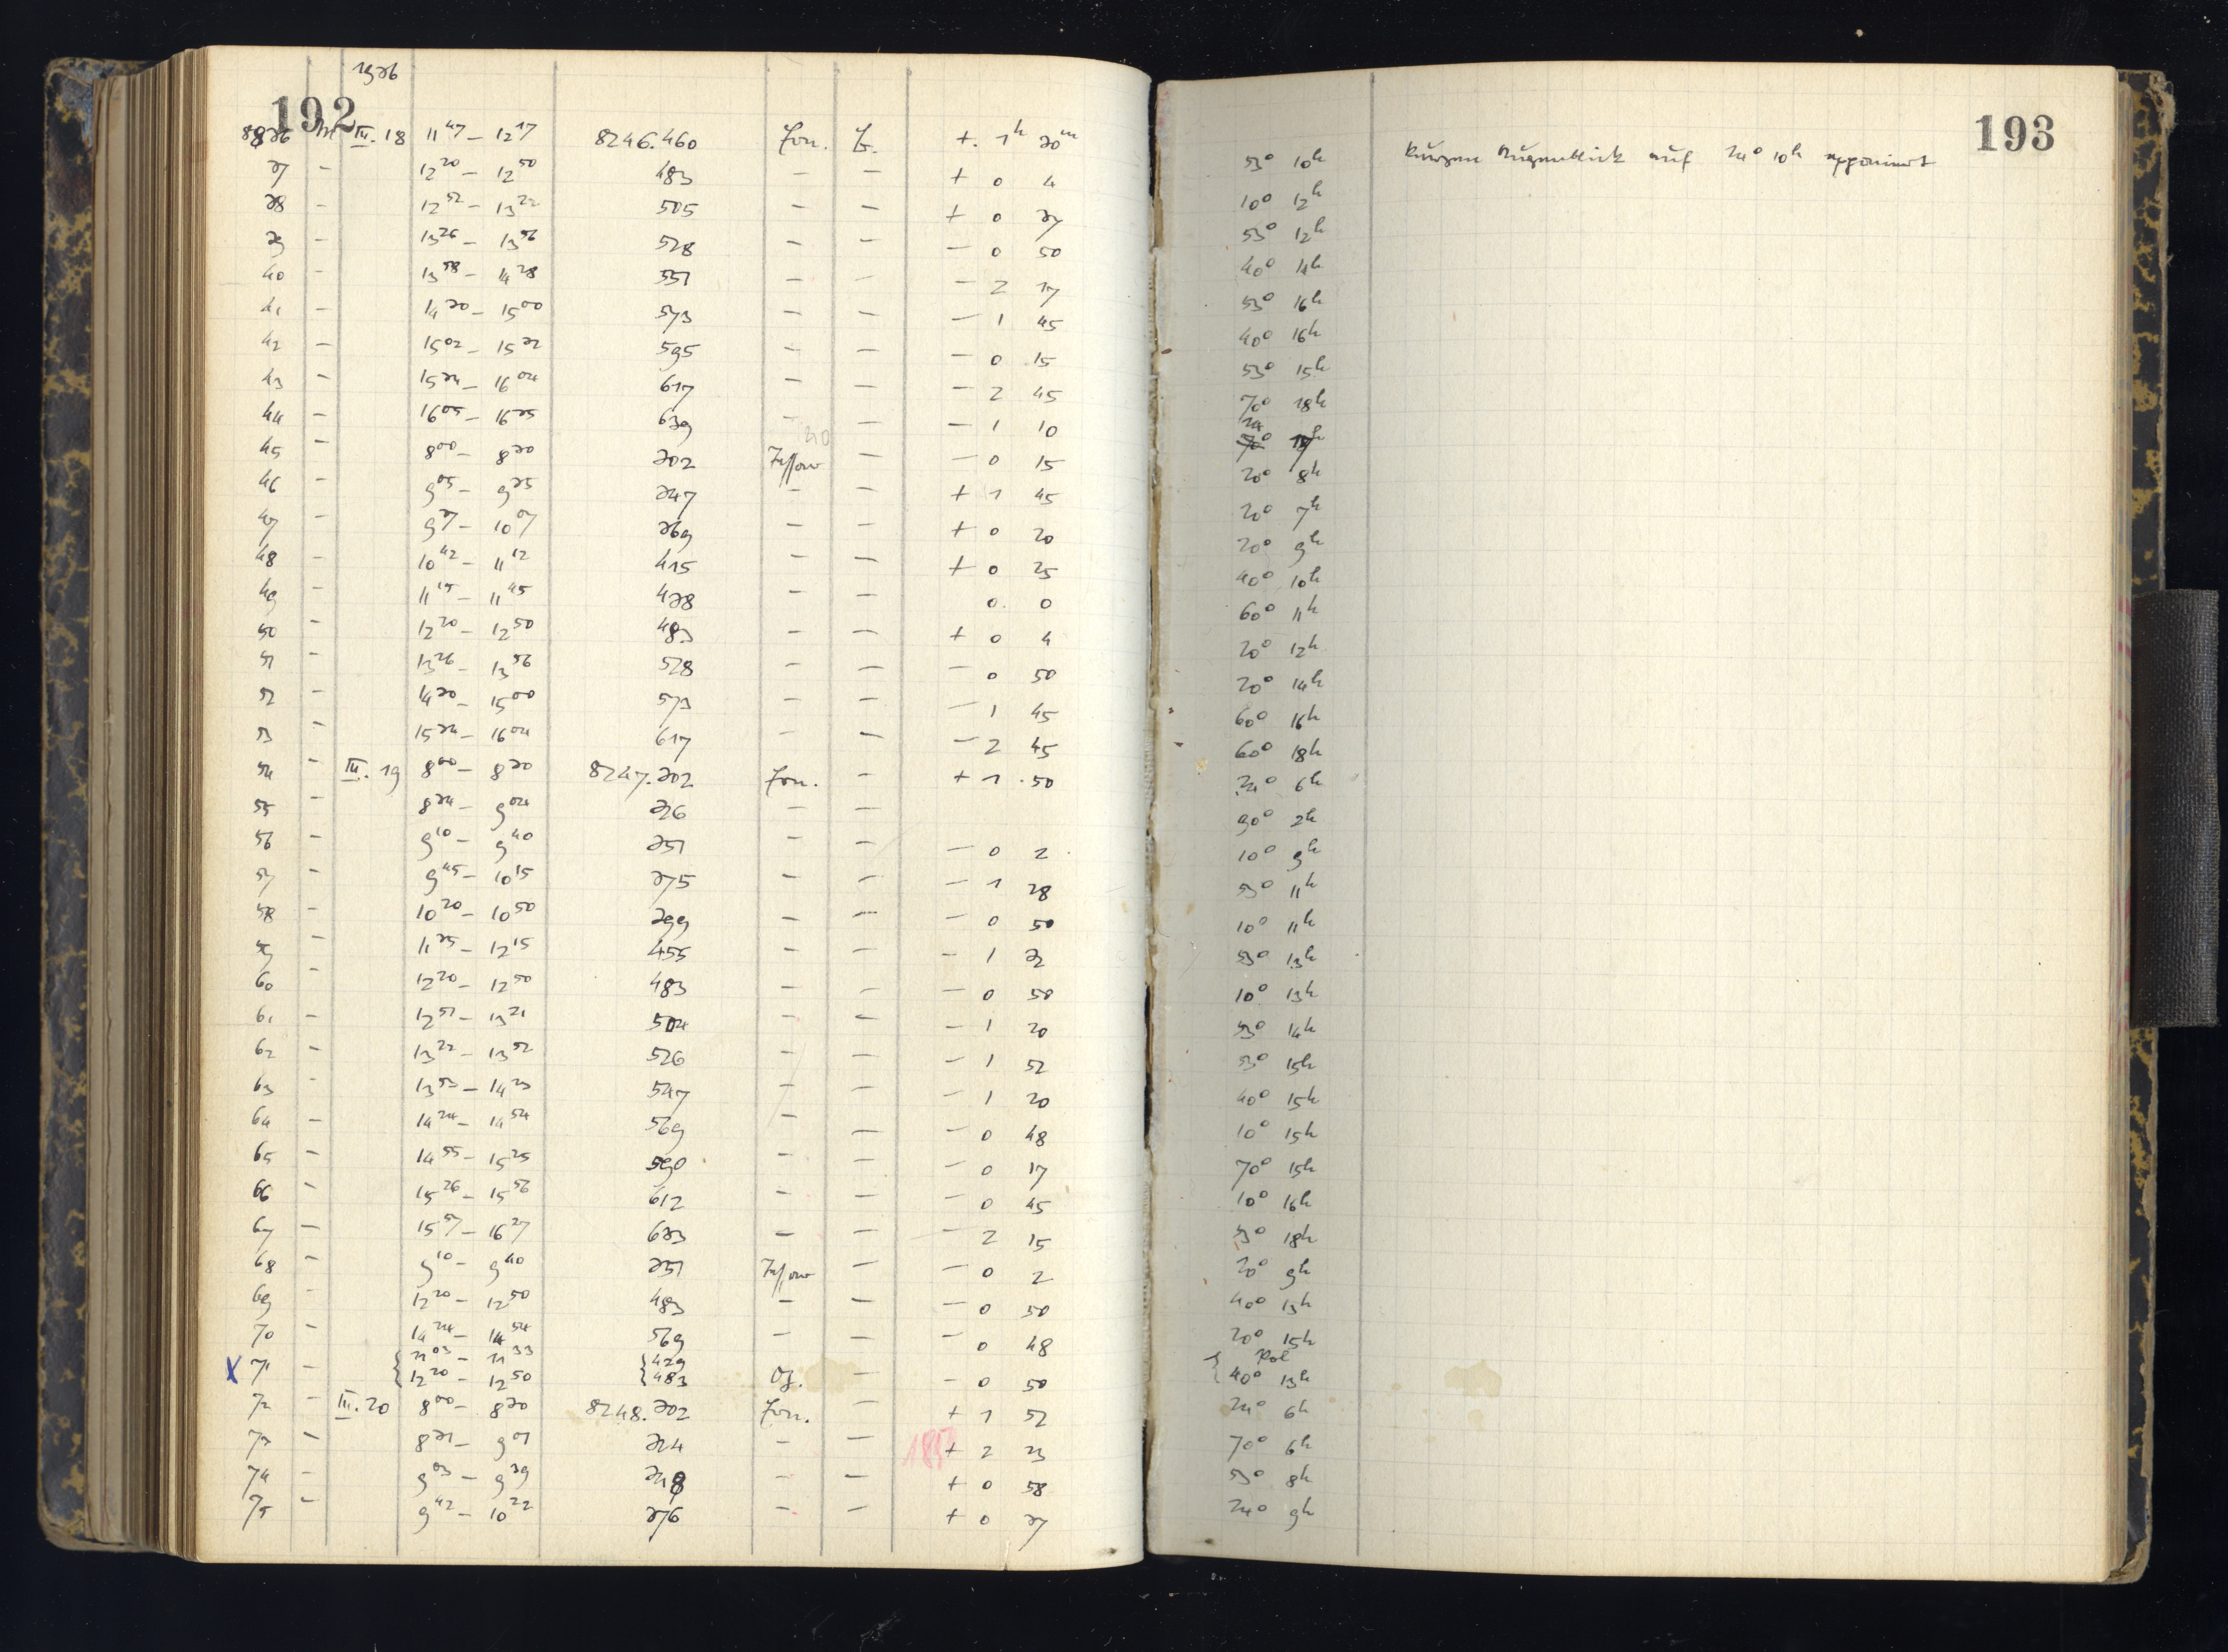 1936
192
193
8836 M III. 18 11 47 – 12 17 8246.460 Zon. Z. + 1h 20m 53° 10h kurzen Augenblick auf 24° 10h exponiert
37 – 12 20 – 12 50 483 – – + 0 4 10° 12h
38 – 12 52 – 13 22 505 – – + 0 27 53° 12h
39 – 13 26 – 13 56 528 – – – 0 50 40° 14h
40 – 13 58 – 14 28 551 – – – 2 17 53° 16h
41 – 14 30 – 15 00 573 – – – 1 45 40° 16h
42 – 15 02 – 15 32 595 – – – 0 15 53° 15h
43 – 15 34 – 16 04 617 – – – 2 45 70° 18h
44 – 16 05 – 16 35 639 – – – 1 10 24
45 – 8 00 – 8 30 202 – – 0 15 20° 8h
46 – 9 05 – 9 35 247 – – + 1 45 20° 7h
47 – 9 37 – 10 07 269 – – + 0 20 20° 9h
48 – 10 42 – 11 12 415 – – + 0 25 40° 10h
49 – 11 15 – 11 45 438 – – 0 0 60° 11h
50 – 12 20 – 12 50 483 – – + 0 4 20° 12h
51 – 13 26 – 13 56 528 – – – 0 50 20° 14h
52 – 14 30 – 15 00 573 – – – 1 45 60° 16h
53 – 15 34 – 16 04 617 – – – 2 45 60° 18h
54 – III. 19 8 00 – 8 30 8247.202 Zon. – + 1 50 24° 6h
55 – 8 34 – 9 04 226 – – 90° 2h
56 – 9 10 – 9 40 251 – – – 0 2 10° 9h
57 – 9 45 – 10 15 275 – – – 1 28 53° 11h
58 – 10 20 – 10 50 299 – – – 0 50 10° 11h
59 – 11 35 – 12 15 455 – – – 1 22 53° 13h
60 – 12 20 – 12 50 483 – – – 0 50 10° 13h
61 – 12 51 – 13 21 504 – – – 1 20 53° 14h
62 – 13 22 – 13 52 526 – – – 1 52 53° 15h
63 – 13 53 – 14 23 547 – – – 1 20 40° 15h
64 – 14 24 – 14 54 569 – – – 0 48 10° 15h
65 – 14 55 – 15 25 590 – – – 0 17 70° 15h
66 – 15 26 – 15 56 612 – – – 0 45 10° 16h
67 – 15 57 – 16 27 633 – – – 2 15 53° 18h
68 – 9 10 – 9 40 251 – – 0 2 20° 9h
69 – 12 20 – 12 50 483 – – – 0 50 40° 13h
70 – 14 24 – 14 54 569 – – – 0 48 20° 15h
X 71 – 11 03 – 11 33 429 Pol
12 20 – 12 50 483 – – 0 50 40° 13h
72 – III. 20 8 00 – 8 30 8248.202 Zon. – + 1 52 24° 6h
73 – 8 31 – 9 01 224 – – + 2 23 70° 6h
74 – 9 03 – 9 39 248 – – + 0 58 53° 8h
75 – 9 42 – 10 22 276 – – + 0 27 24° 9h